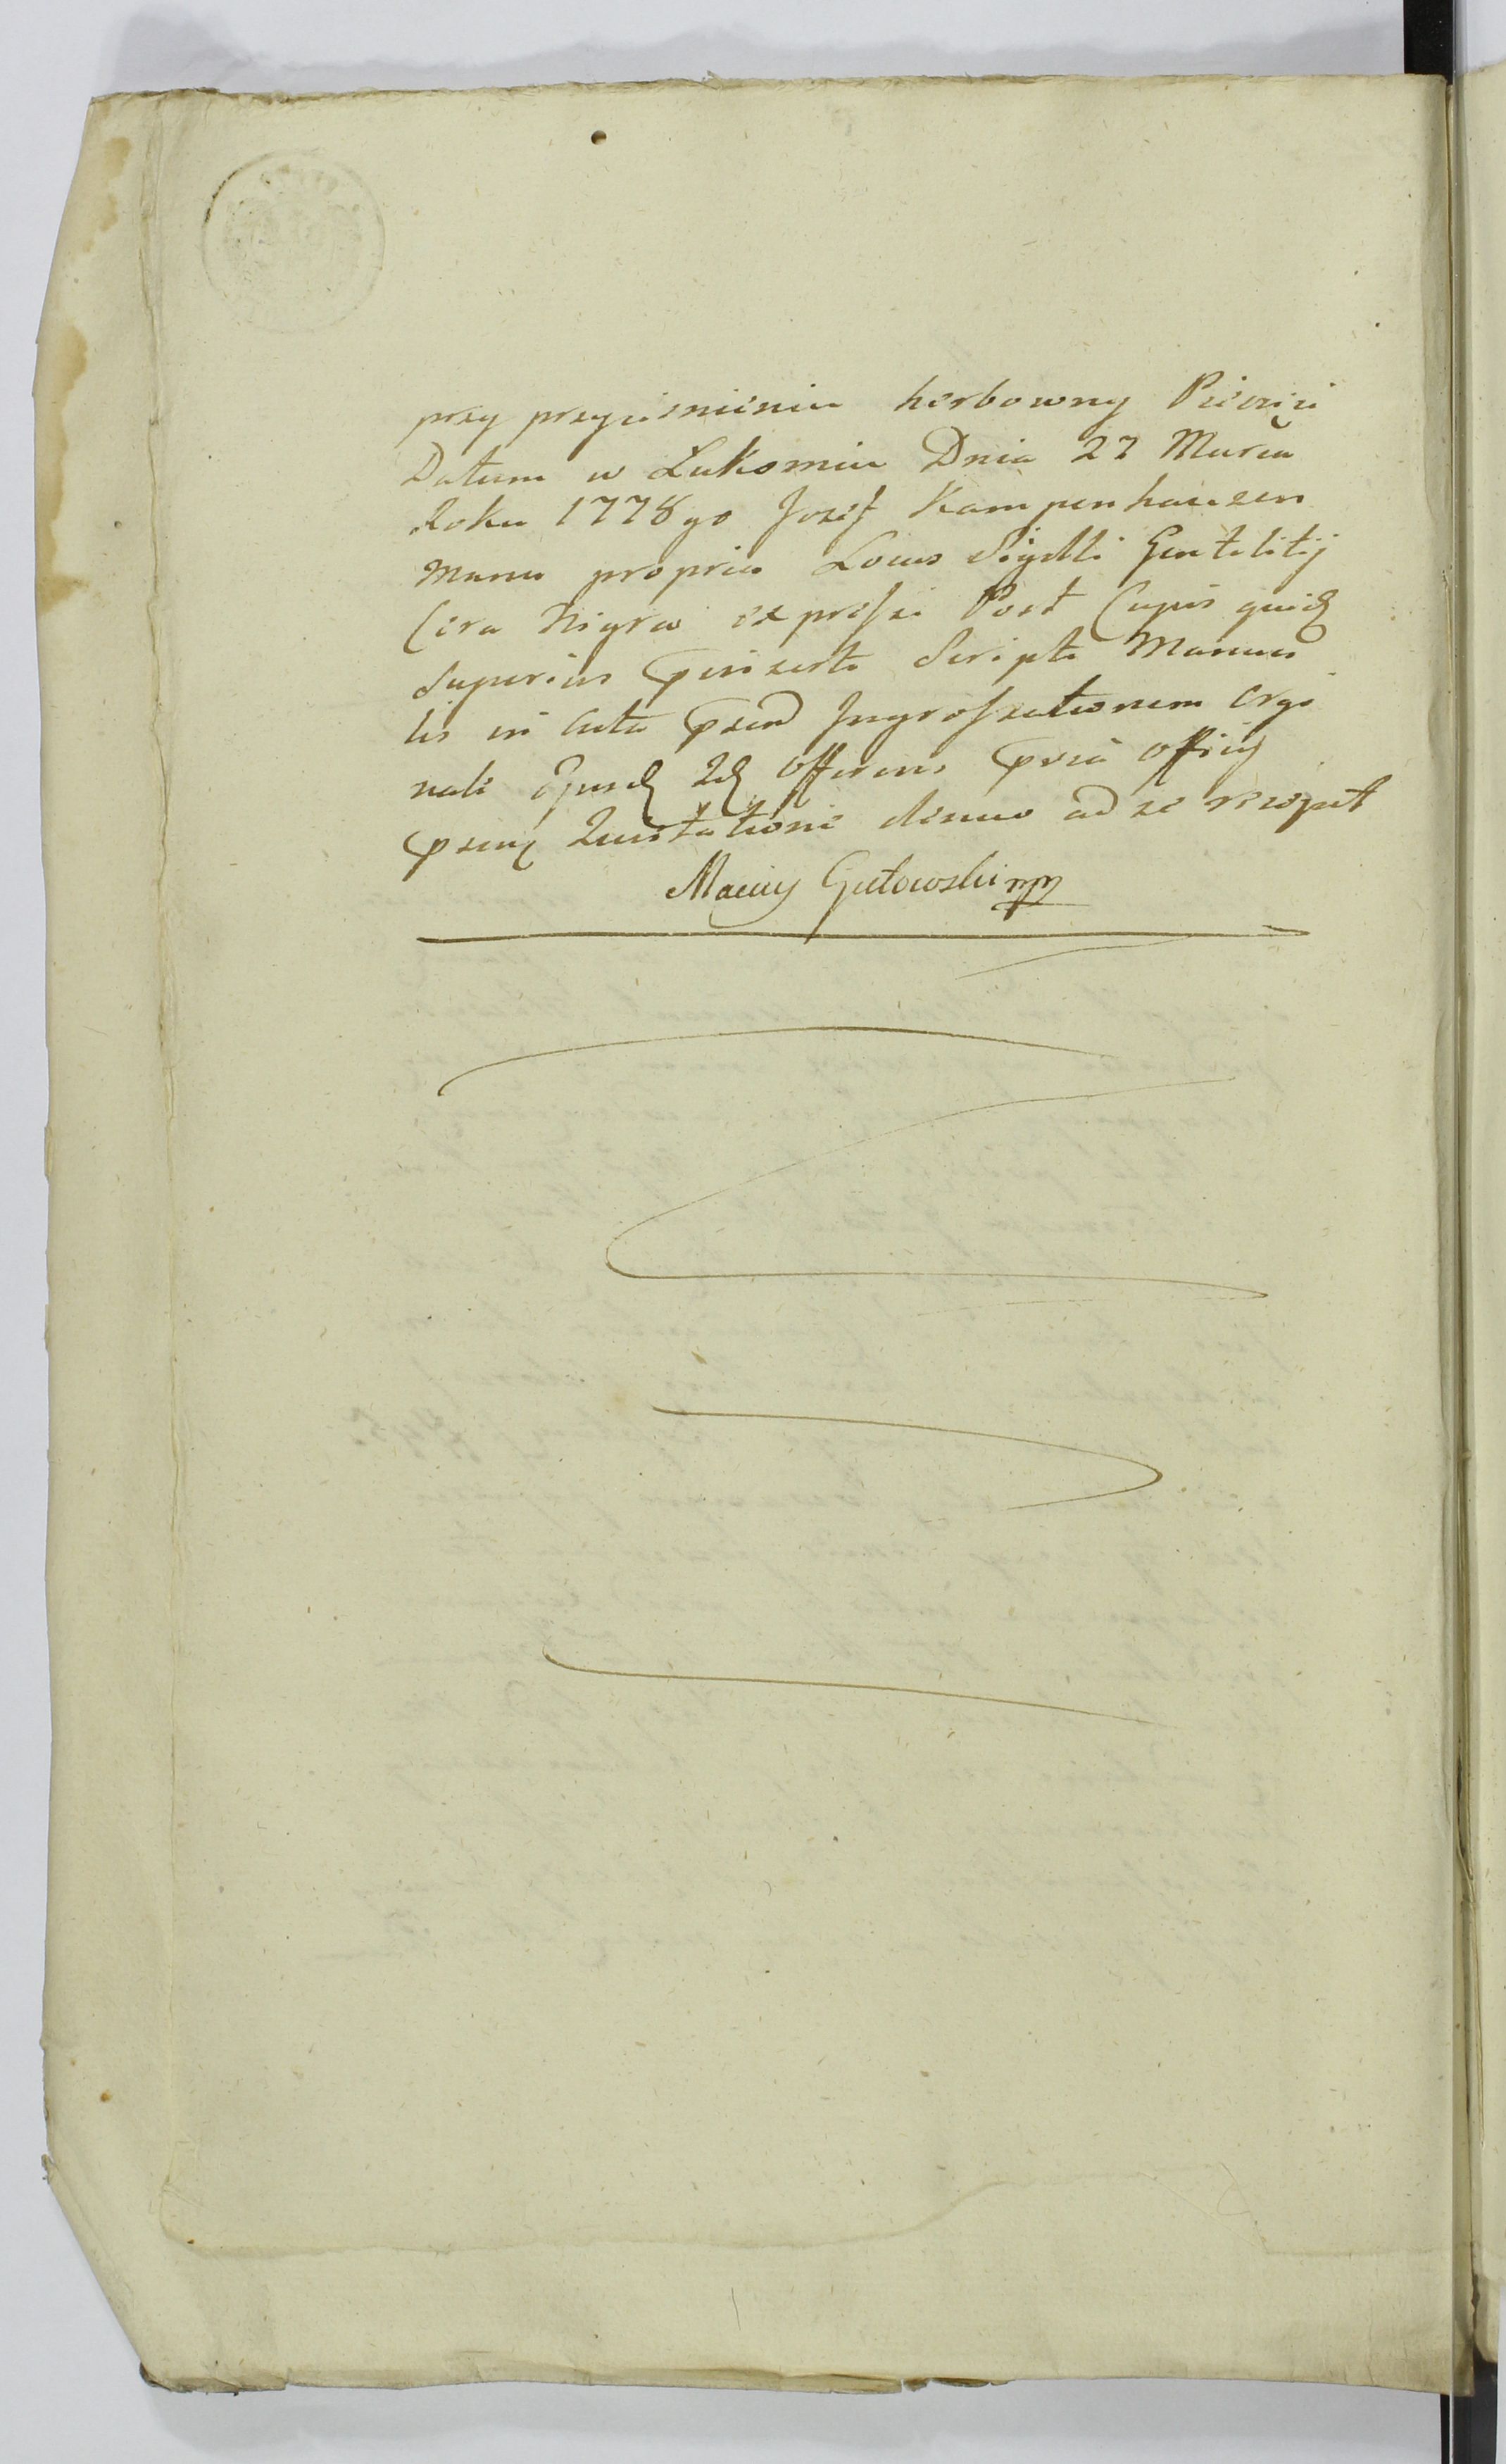 przy przyciśnieniu herbowny Pieczęci
Datum w Łukomiu Dnia 27 Marca
Roku 1778go Jozef Kampenhauzen
Manu propria Locus Sigilli Gentilitij
Cera Nigra expressi Post Cujus quidem
Superius insertj Scripti Manua
lis in Acta Ingrossationem Orgi
nali Ejusd Id Offerens Officij
Quietatione denuo ad se recepit
Maciey Gutowski mp